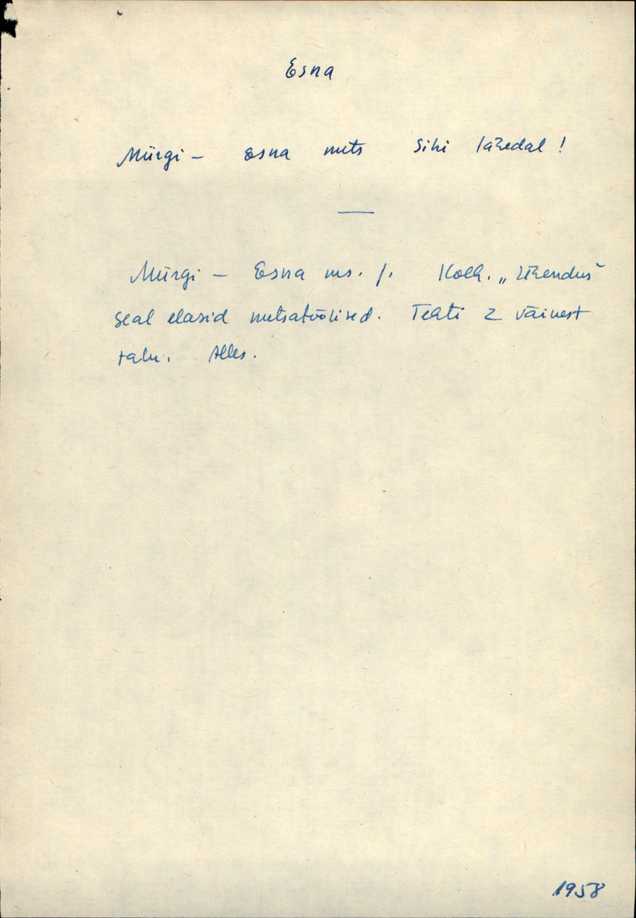 Esna
Mürgi – Esna mets Sihi lähedal!
Mürgi – Esna ms. j. Kolh. „Ühendus"
Seal elasid metsatöölised. Tehti 2 väikest
talu. Alles.
1958